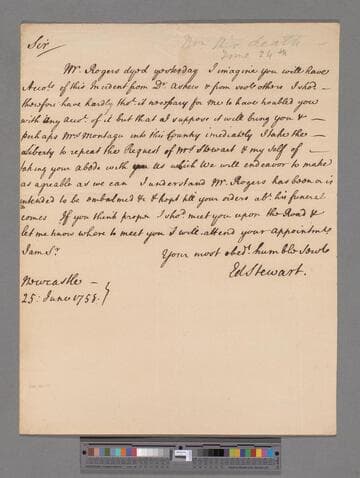 Sir
Mr. Rogers dyed yesterday I imagine you will have
Accots. of this Incident from Dr. Askew & from sevl. others I shod.
therefore have hardly thot. it necessary for me to have troubled you
with any acct. of it but that as I suppose it will bring you &
perhaps Mrs. Montagu into this Country imediately I take the
Liberty to repeat the Request of Mrs. Stewart & my self of
taking your abode with us which We will endeavor to make
as agreable as we can I understand Mr. Rogers has been or is
intended to be embalmed & kept till your orders abt. his funeral
comes If you think proper I shod. meet you upon the Road &
let me know where to meet you I will attend your appointment
I am Sr.
Your most obedt. humble Servt.
Ed Stewart.
Newcastle
25: June 1758.